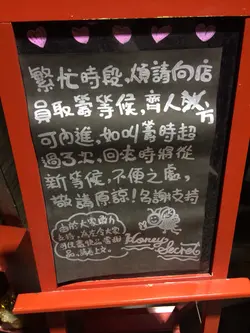 繁忙時段，煩請向店
員取籌等候，齊人方
可內進，如叫籌時超
過3次，回來時將從
新等候，不便之處，
敬請原諒！多謝支持
Honey
Secret